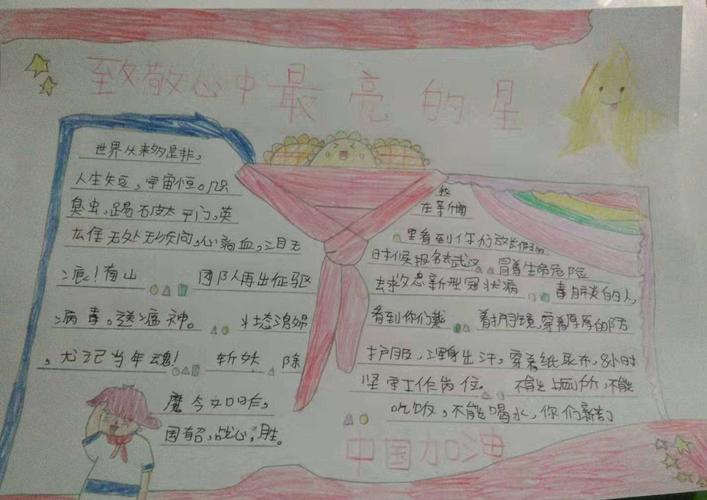 致敬心中最亮的星
世界从来多是非,
人生短,宇宙恒。几只
臭虫,踢石皮太平门,英
去住无处无疾问,心病血,泪无
痕!有山团队再出征驱
病毒。送瘟神。壮志激烈
,尤记当年魂!斩妖除
魔今如昨,
国有召,战必,胜。
我
在新闻
里看到你们放
时候报名去武汉冒着生命危险
去救患新型冠状病毒肺炎的人,
看到你们戴着护目镜,穿着厚厚的防
护服,浑身出汗,穿着纸尿布,8小时
坚守工作岗位。不能上厕所,不能
吃饭,不能喝水,你们辛苦
中国加油